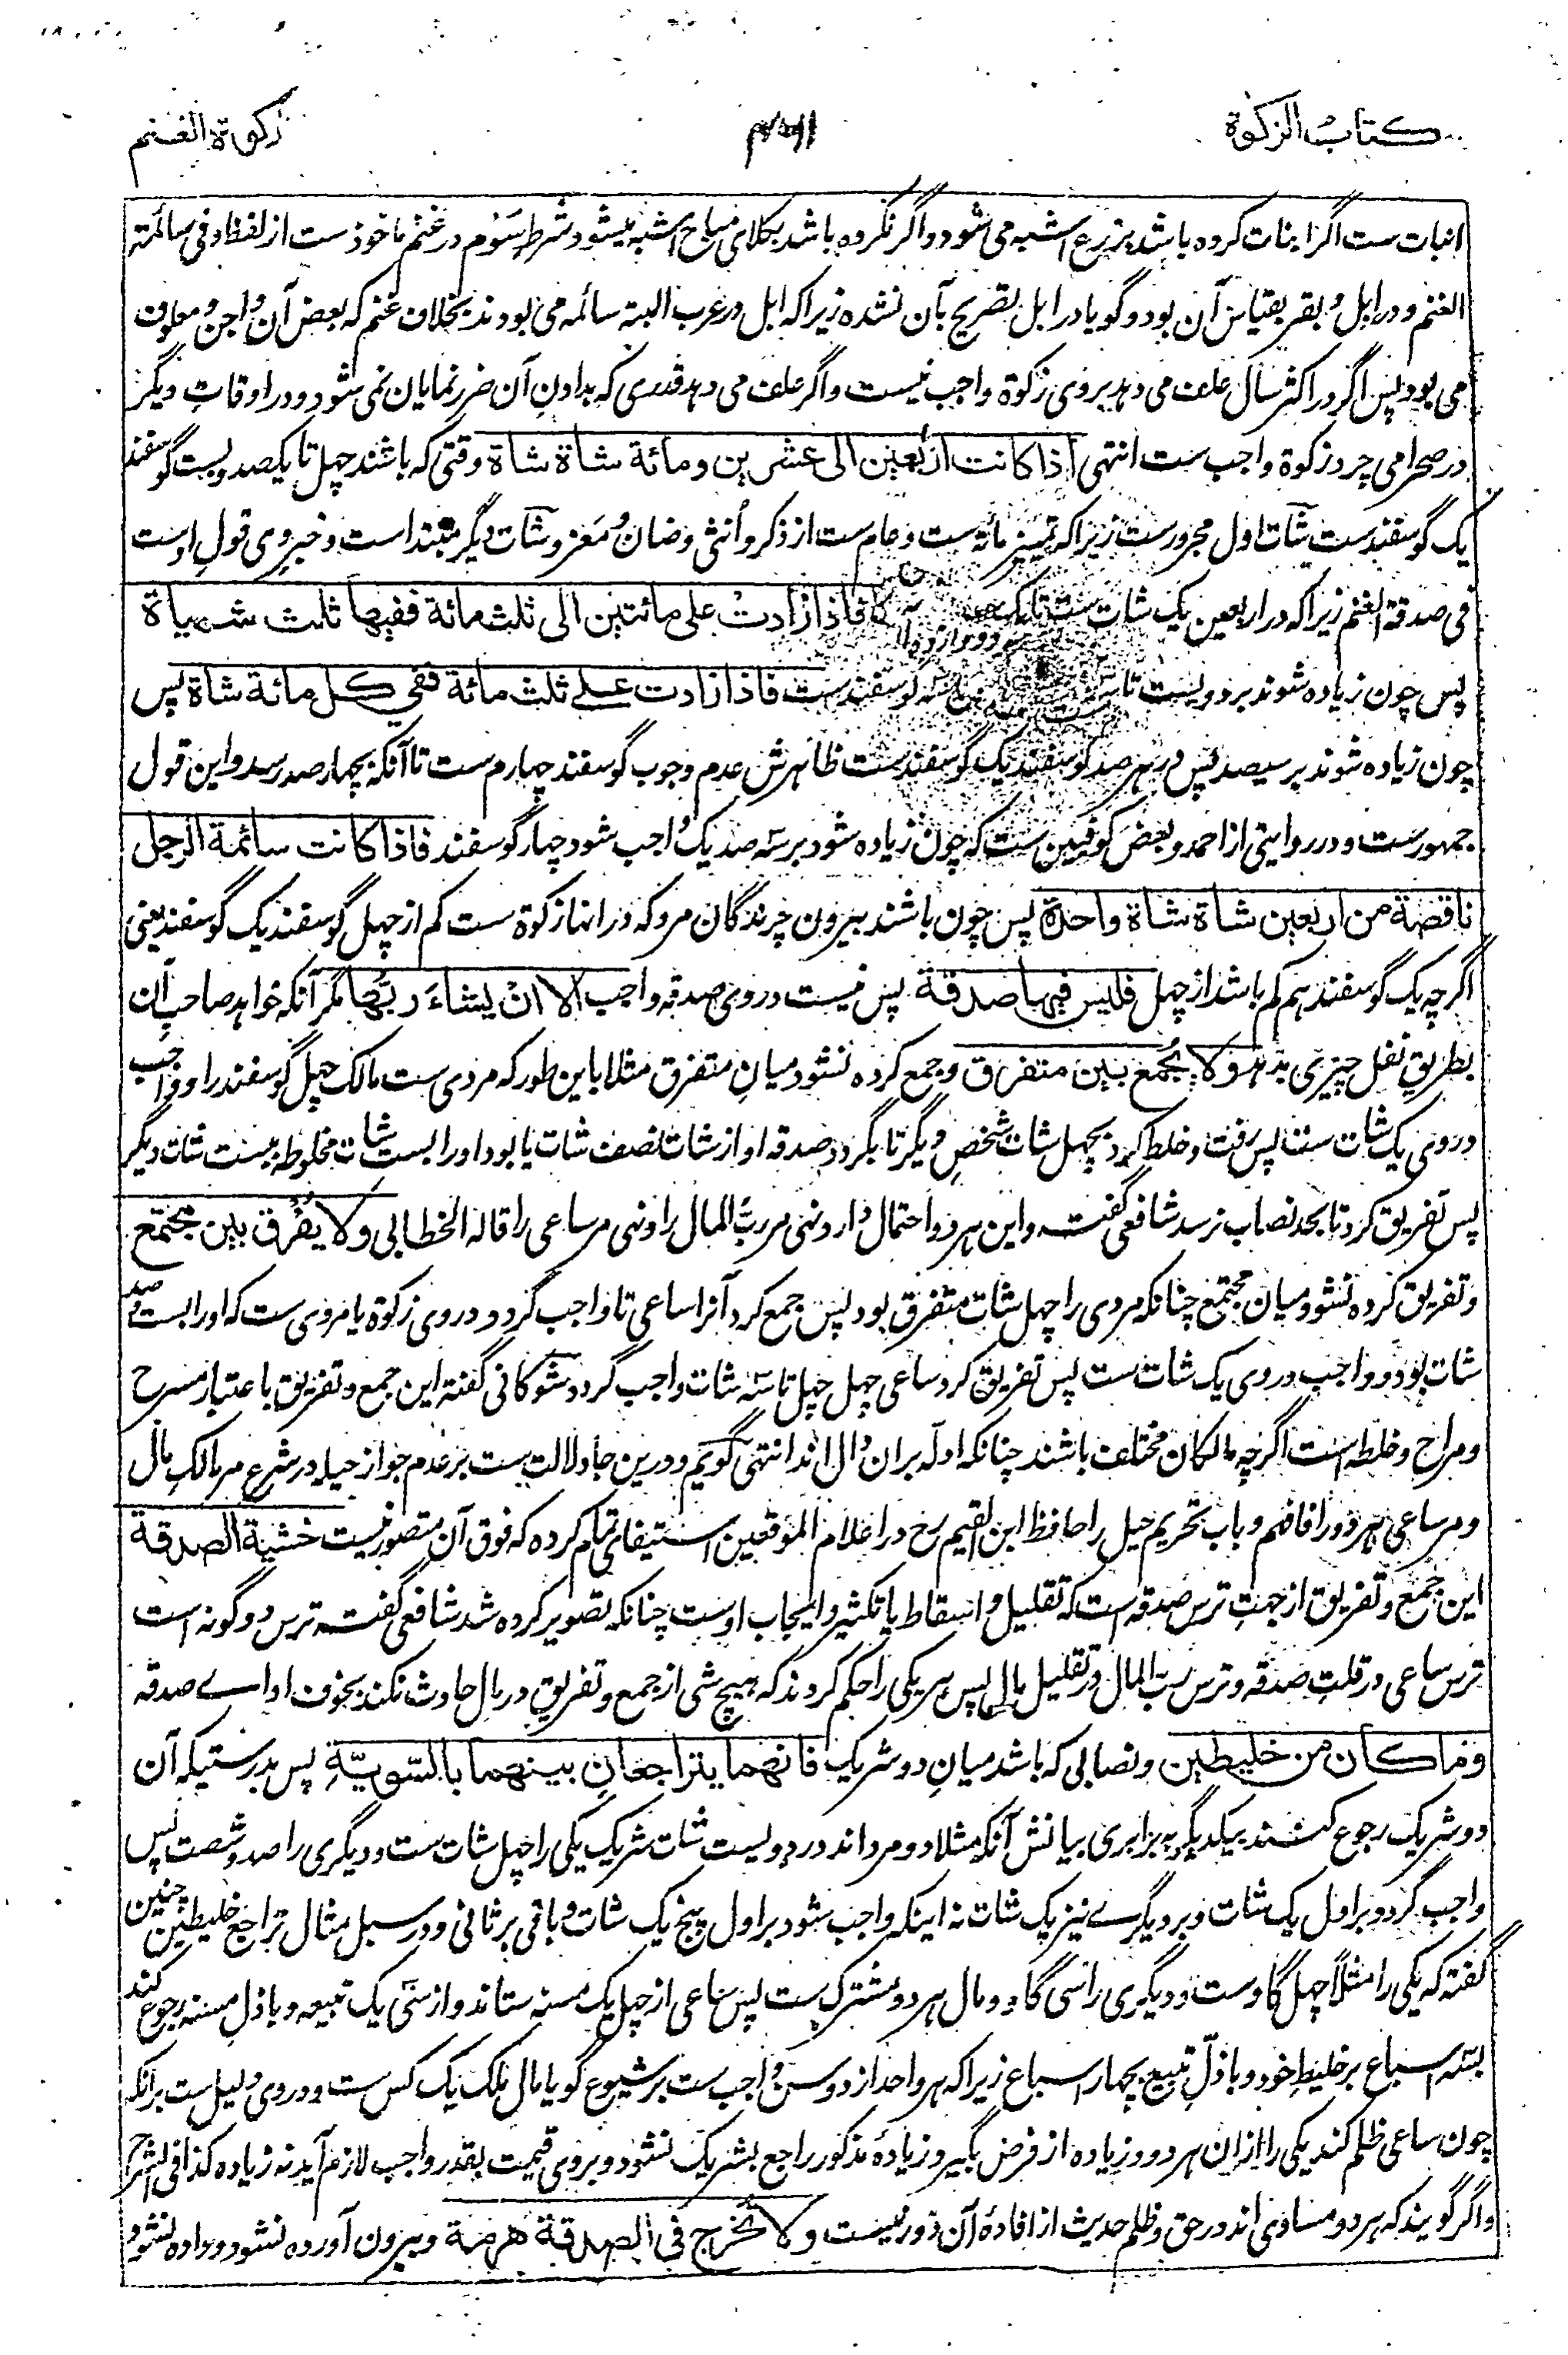 کتاب الزکوة
زکوة الغنم
انبات ست اگر انبات کرده باشد بزرع اشبه می شود و اگر نکرده باشد بکلای مباح اشبه میشود و شرط سوم در غنم ماخوذ ست از لفظ او فی سائمة
الغنم و در ابل و بقر بقیاس آن بود و گویا در ابل تصریح بآن نشده زیرا که ابل در عرب البته سائمه می بودند بخلاف غنم که بعض آن داجن و معلوف
می بود پس اگر در اکثر سال علف می دهد بروی زکوة واجب نیست و اگر علف می دهد قدری که بدادن آن ضرر نمایان نمی شود و در اوقات دیگر
در صحرا می چرد زکوة واجب ست انتهی اذا کانت اربعین الی عشرین ومائة شاة شاة وقتی که باشند چهل تا یکصد و بست گوسفند
یک گوسفند ست شات اول مجرور ست زیرا که تمییز مائة ست و عام ست از ذکر و أنثی و ضان و معز و شات دیگر مبتدا است و خبر وی قول اوست
فی صدقة الغنم زیرا که در اربعین یک شات ست فاذا زادت علی مائتین الی ثلث مائة ففیها ثلث شیاة
پس چون زیاده شوند بر دویست تا گوسفند ست فاذا زادت علے ثلث مائة ففی کل مائة شاة پس
چون زیاده شوند بر سیصد پس در هر صد گوسفند یک گوسفند ست ظاهرش عدم وجوب گوسفند چهارم ست تا آنکه بچهار صد رسد و این قول
جمهور ست و در روایتی از احمد و بعض کوفیین ست که چون زیاده شود بر سه صد یک واجب شود چهار گوسفند فاذا کانت سائمة الرجل
ناقصة من اربعین شاة شاة واحدة پس چون باشند بیرون چرندگان مرد که در انها زکوة ست کم از چهل گوسفند یک گوسفند یعنی
اگرچه یک گوسفند هم کم باشد از چهل فلیس فیها صدقة پس نیست در وی صدقه واجب الا ان یشاء ربها مگر آنکه خواهد صاحب آن
بطریق نفل چیزی بدهد ولا یجمع بین متفرق و جمع کرده نشود میان متفرق مثلا باین طور که مردی ست مالک چهل گوسفند را و واجب
در وی یک شات ست پس رفت و خلط کرد بچهل شات شخص دیگر تا بگردد صدقه او از شات نصف شات یا بود او را بست شات مخلوطه ببست شات دیگر
پس تفریق کرد تا بحد نصاب نرسد شافعی گفته و این هر دو احتمال دارد نهی مر رب المال را و نهی مر ساعی را قاله الخطابی ولا یفرق بین مجتمع
و تفریق کرده نشود میان مجتمع چنانکه مردی را چهل شات متفرق بود پس جمع کرد آنرا ساعی تا واجب گردد در وی زکوة یا مردی ست که او را صد و بست
شات بود و واجب در وی یک شات ست پس تفریق کرد ساعی چهل چهل تا سه شات واجب گردد شوکانی گفته این جمع و تفریق باعتبار مسرح
و مراح و خلطه است اگرچه مالکان مختلف باشند چنانکه ادله بران دال اند انتهی گویم و درین جا دلالت ست بر عدم جواز حیله در شرع مر مالک مال
و مر ساعی هر دو را فافهم و باب تحریم حیل را حافظ ابن القیم رح در اعلام الموقعین استیفای تمام کرده که فوق آن متصور نیست خشیة الصدقة
این جمع و تفریق از جهت ترس صدقه است که تقلیل و اسقاط یا تکثیر و ایجاب اوست چنانکه تصویر کرده شد شافعی گفته ترس دو گونه است
ترس ساعی در قلت صدقه و ترس رب المال در تقلیل مال پس هر یکی را حکم کردند که هیچ شی از جمع و تفریق در مال حادث نکند بخوف اداے صدقه
وما کان من خلیطین و نصابی که باشد میان دو شریک فانهما یتراجعان بینهما بالسویة پس بدرستیکه آن
دو شریک رجوع کنند بیکدیگر به برابری بیانش آنکه مثلا دو مرد اند در دو لیست شات شریک یکی را چهل شات ست و دیگری را صد و شصت پس
واجب گردد بر اول یک شات و بر دیگرے نیز یک شات نه اینکه واجب شود بر اول پنج یک شات و باقی بر ثانی و در سبل مثال تراجع خلیطین چنین
گفته که یکی را مثلاً چهل گاوست و دیگری را سی گاو و مال هر دو مشترک ست پس ساعی از چهل یک مسنه ستاند و از سی یک تبیعه و باذل مسنه رجوع کند
بسه اسباع بر خلیط خود و باذل تبیع بچهار اسباع زیرا که هر واحد از دو سن واجب ست بر شیوع گویا مال ملک یک کس ست و در وی دلیل ست برانکه
چون ساعی ظلم کند یکی را ازان هر دو و زیاده از فرض بگیرد زیادهٔ مذکور راجع بشریک نشود و بروی قیمت بقدر واجب لازم آید نه زیاده کذا فی الشرح
و اگر گویند که هر دو مساوی اند در حق و ظلم حدیث از افادهٔ آن دور نیست ولا تخرج فی الصدقة هرمة و بیرون آورده نشود و داده نشود